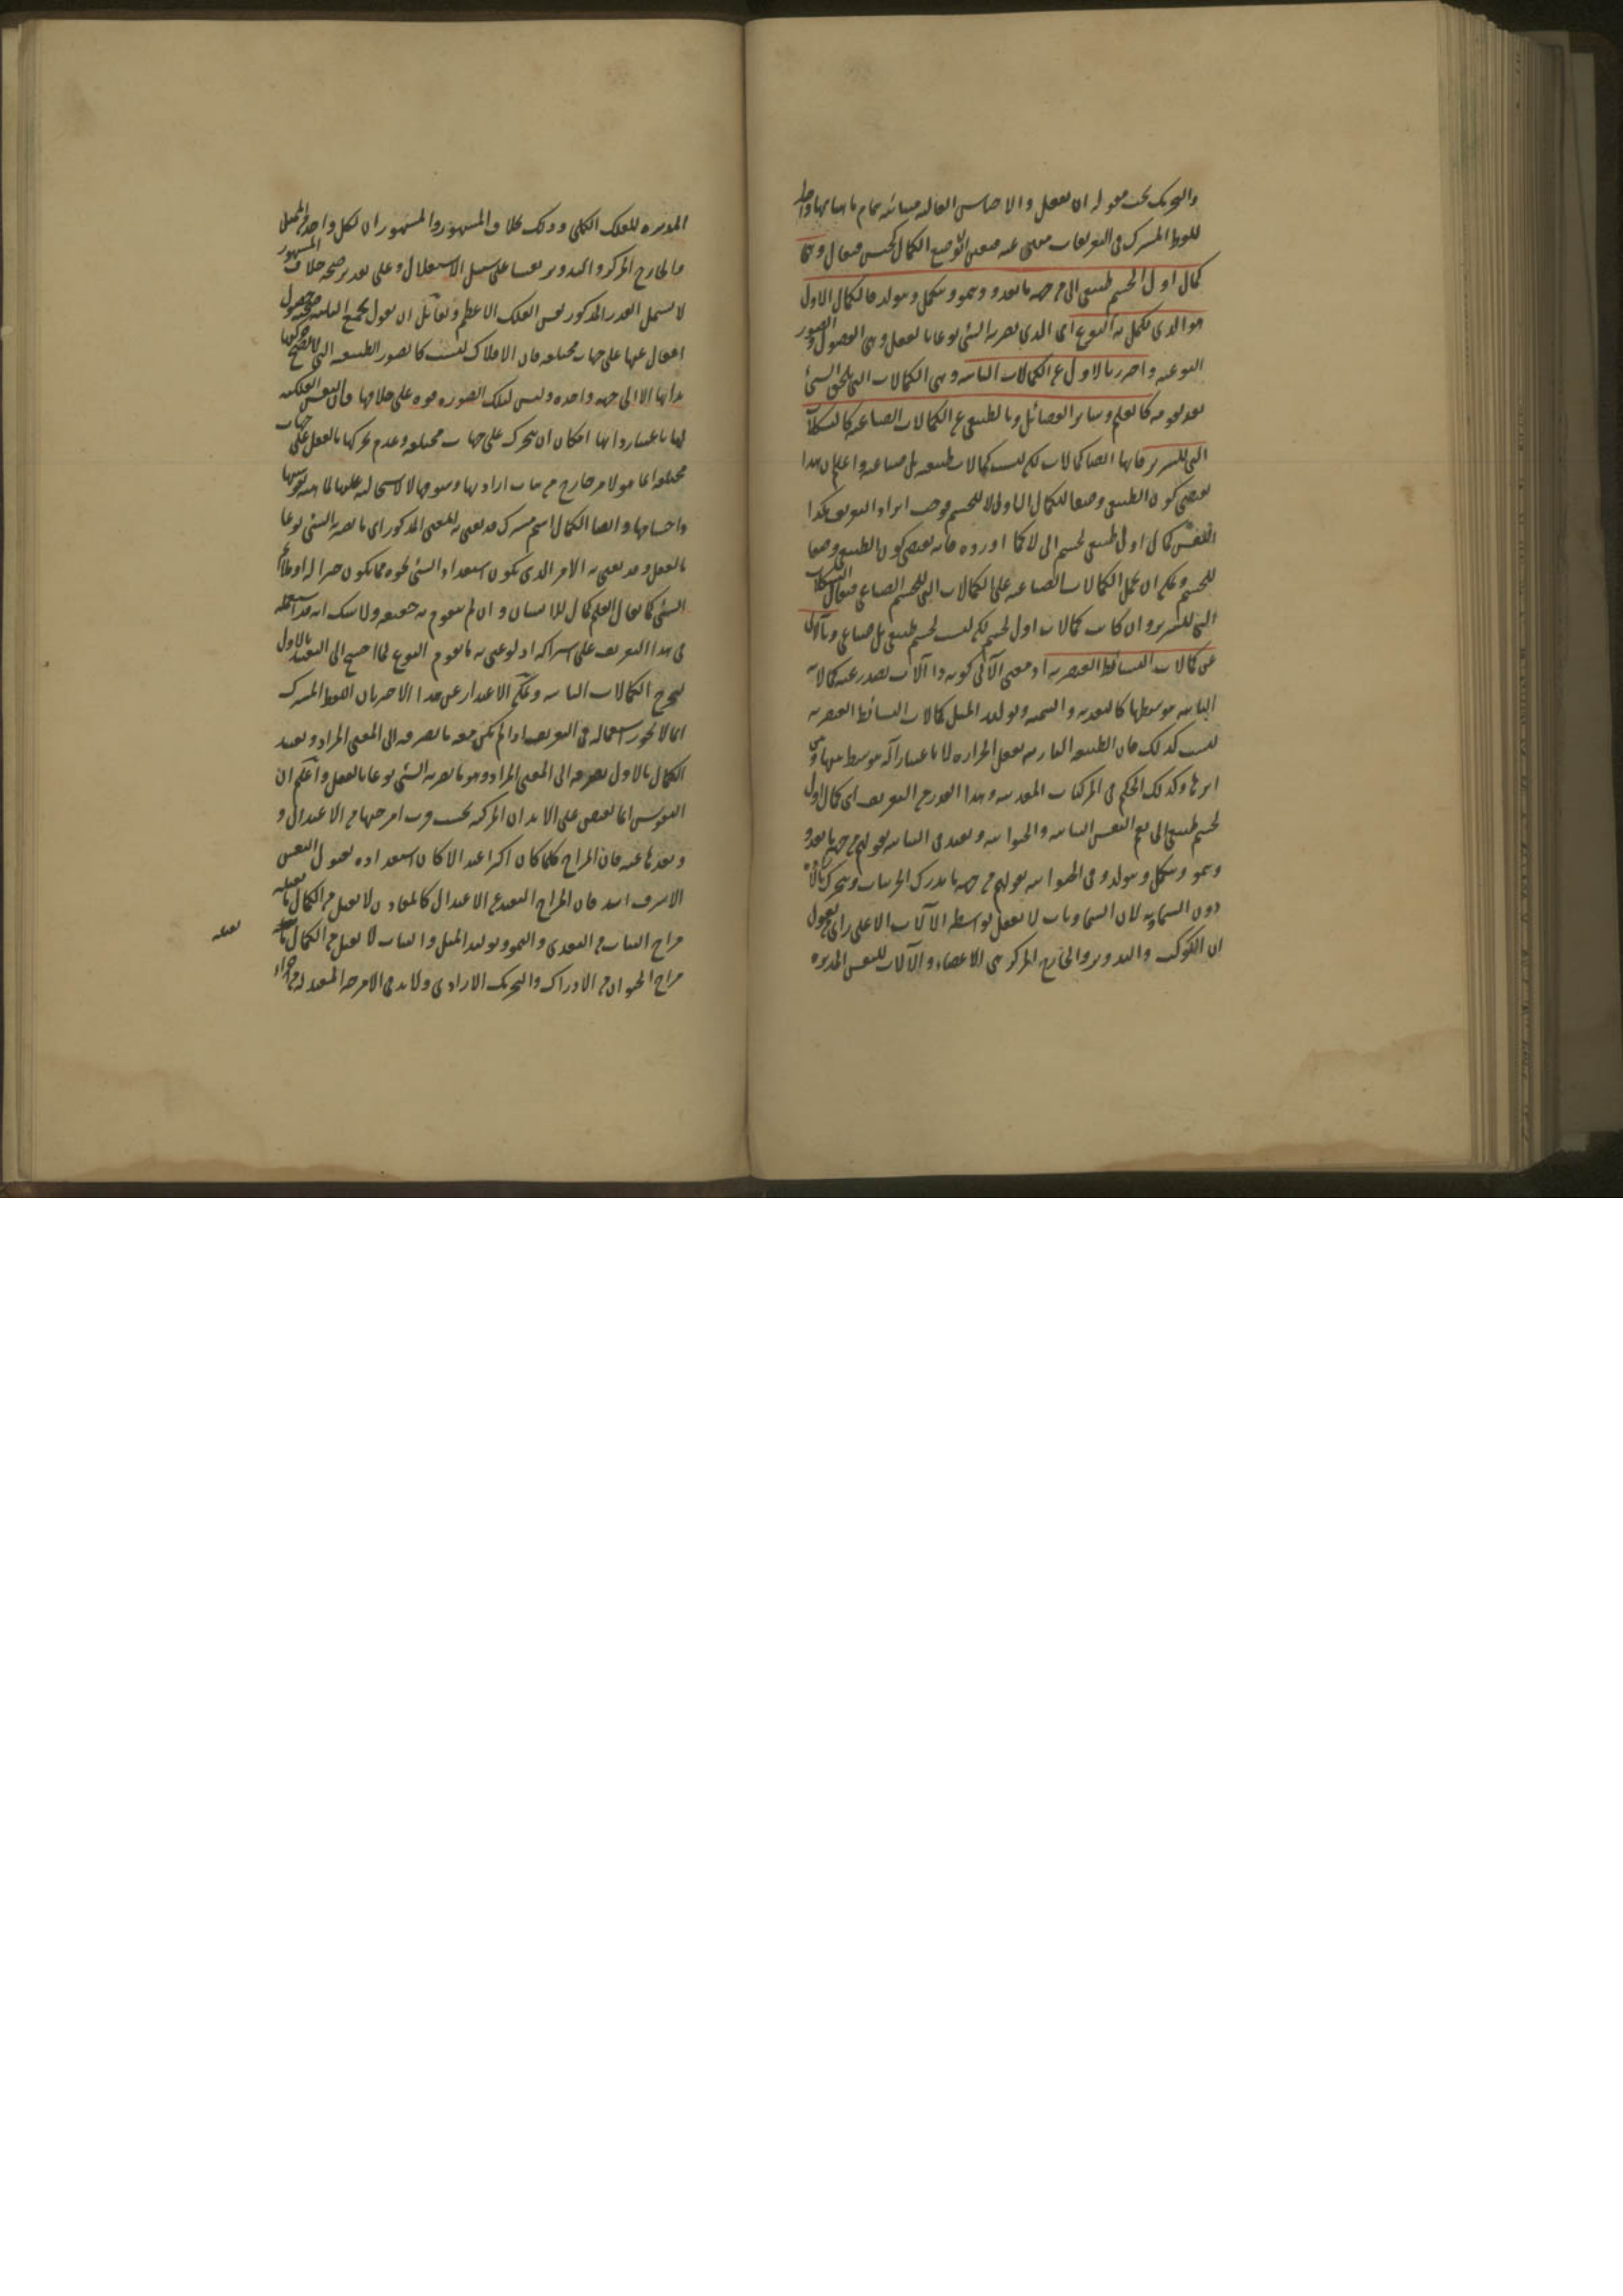 والتحريك تحت مقوله ان يفعل والاحساس
اللفظ المشترك في التعريفات
كمال اول لجسم طبيعي الي من جهة ما يتغذى وينمو ويولد فالكمال الاول
هو الذي يكمل به النوع اي الذي يصير به الشئ نوعا بالفعل وهي الفصول والصور
النوعيه واحترز بالاول عن الكمالات الثانيه وهي الكمالات التي تلحق الشئ
بعد تقومه كالعلم وساير الفضائل وبالطبيعي عن الكمالات الصناعيه كالتشكلات
التي للسرير فانها ايضا كمالات لكن ليست كمالات طبيعيه بل صناعيه واعلم ان هذا
يقتضي كون الطبيعي وصفا للكمال الاول لا للجسم فوجب ايراد التعريف هكذا
النفس كمال اول طبيعي لجسم الي لا كما اورده فانه يقتضي كون الطبيعي وصفا
للجسم ويمكن ان يحمل الكمالات الصناعيه على الكمالات التي للجسم الصناعي فيقال التشكلات
التي للسرير وان كانت كمالات اول لجسم لكن ليست لجسم طبيعي بل صناعي وبآلي
عن كمالات البسائط العنصريه اذ معنى الآلي كونه ذا آلات يصدر عنه كمالاته
الثانيه بتوسطها كالتغذيه والتنميه وتوليد المثل وكمالات البسائط العنصريه
ليست كذلك فان الطبيعه الناريه تفعل الحراره لا باعتبار آله متوسط بينها وبين
اثرها وكذلك الحكم في المركبات المعدنيه وهذا القدر من التعريف اي كمال اول
لجسم طبيعي الي يعم النفس النباتيه والحيوانيه ويقيد في النباتيه بقولهم من جهة ما يتغذى
وينمو ويولد وفي الحيوانيه بقولهم من جهة ما يدرك الجزئيات ويتحرك بالاراده
دون السماويه لان السماويات لا تفعل بواسطه الآلات الا على راي من يقول
ان الكوكب والتدوير والخارج المركز هي الاعضاء والآلات للنفس المدبره
المدبره للفلك الكلي وذلك خلاف المشهور والمشهور ان لكل واحد من الممثل
والخارج المركز والتدوير نفسا على سبيل الاستقلال وعلى تقدير صحه خلاف المشهور
لا يشمل القدر المذكور نفس الفلك الاعظم ولقائل ان يقول
افعال عنها على جهات مختلفه فان الافلاك ليست كالصور الطبيعيه التي
بذاتها الا الى جهه واحده وليس لتلك الصوره قوه على خلافها فان النفس الفلكيه
لها باعتبار ذاتها امكان ان تتحرك على جهات مختلفه وعدم تحركها بالفعل على جهات
مختلفه انما هو لامر خارج من باب ارادتها وشوقها لا لاستحاله عليها
واجسامها وايضا الكمال اسم مشترك قد يعني به المعنى المذكور اي ما يصير به الشئ نوعا
بالفعل وقد يعني به الامر الذي يكون استعداد الشئ نحوه مما يكون خيرا له او ملائم
الشئ كما يقال العلم كمال للانسان وان لم يتقوم به حقيقته ولا شك انه قد استعمله
في هذا التعريف على اشتراكه اذ لو عني به ما يقوم النوع لما احتيج الى التقييد بالاول
ليخرج الكمالات الثانيه ويمكن الاعتذار عن هذا الاخير بان اللفظ المشترك
انما لا يجوز استعماله في التعريف اذا لم يكن معه ما يصرفه الى المعنى المراد وتقييد
الكمال بالاول يصرفه الى المعنى المراد وهو ما يصير به الشئ نوعا بالفعل واعلم ان
النفوس انما تفيض على الابدان المركبه بحسب قرب امزجتها من الاعتدال و
وبعدها عنه فان المزاج كلما كان اكثر اعتدالا كان استعداده لقبول النفس
الاشرف اشد فان المزاج البعيد عن الاعتدال كالمعادن لا يقبل من الكمال ما يقبله
مزاج النبات من التغذي والنمو وتوليد المثل والنبات لا يقبل من الكمال ما
يقبله
مزاج الحيوان من الادراك والتحريك الارادي ولا بد في الامزجه المعتدله من اجزاء